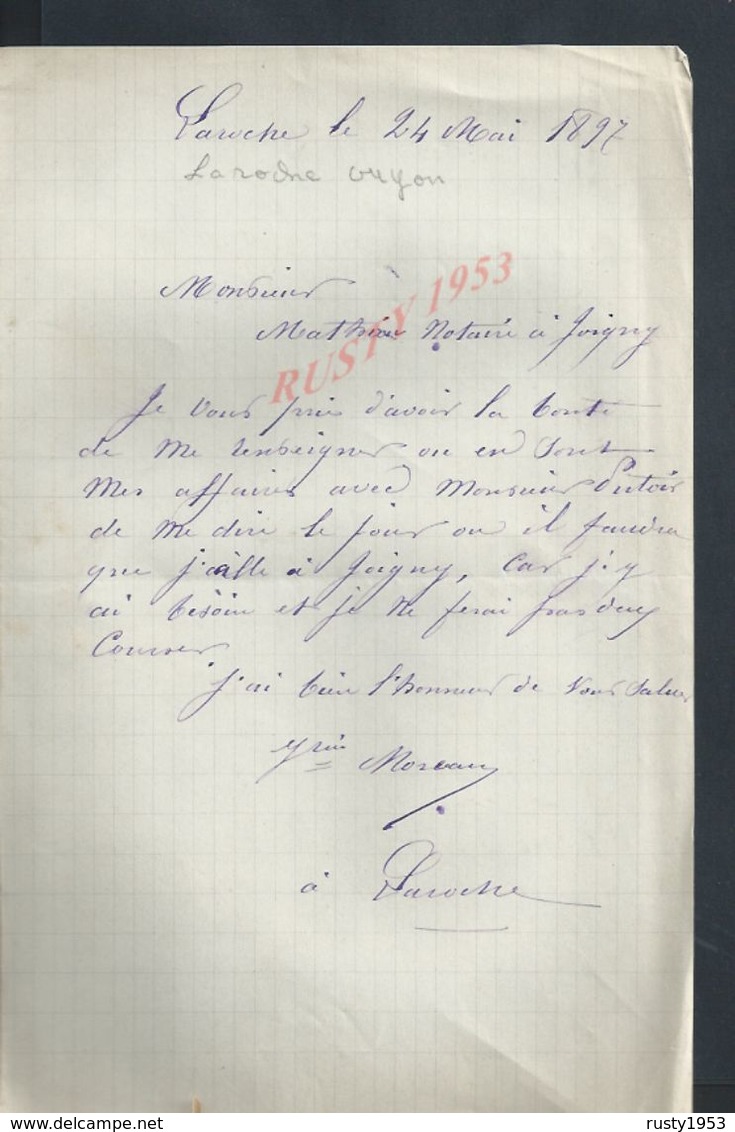 Laroche le 24 Mai 1897
Laroche
Monsieur
Mathieu Notaire à Joigny
RUSTY 1953
Je vous prie d'avoir la bonté
de me renseigner ou en sont
mes affaires avec Monsieur
de me dire le jour ou il faudra
que j'aille à Joigny, car j'y
ai besoin et je ne ferai pas deux
Courses
J'ai bien l'honneur de vous saluer
Moreau
à Laroche
delcampe.net
rusty1953